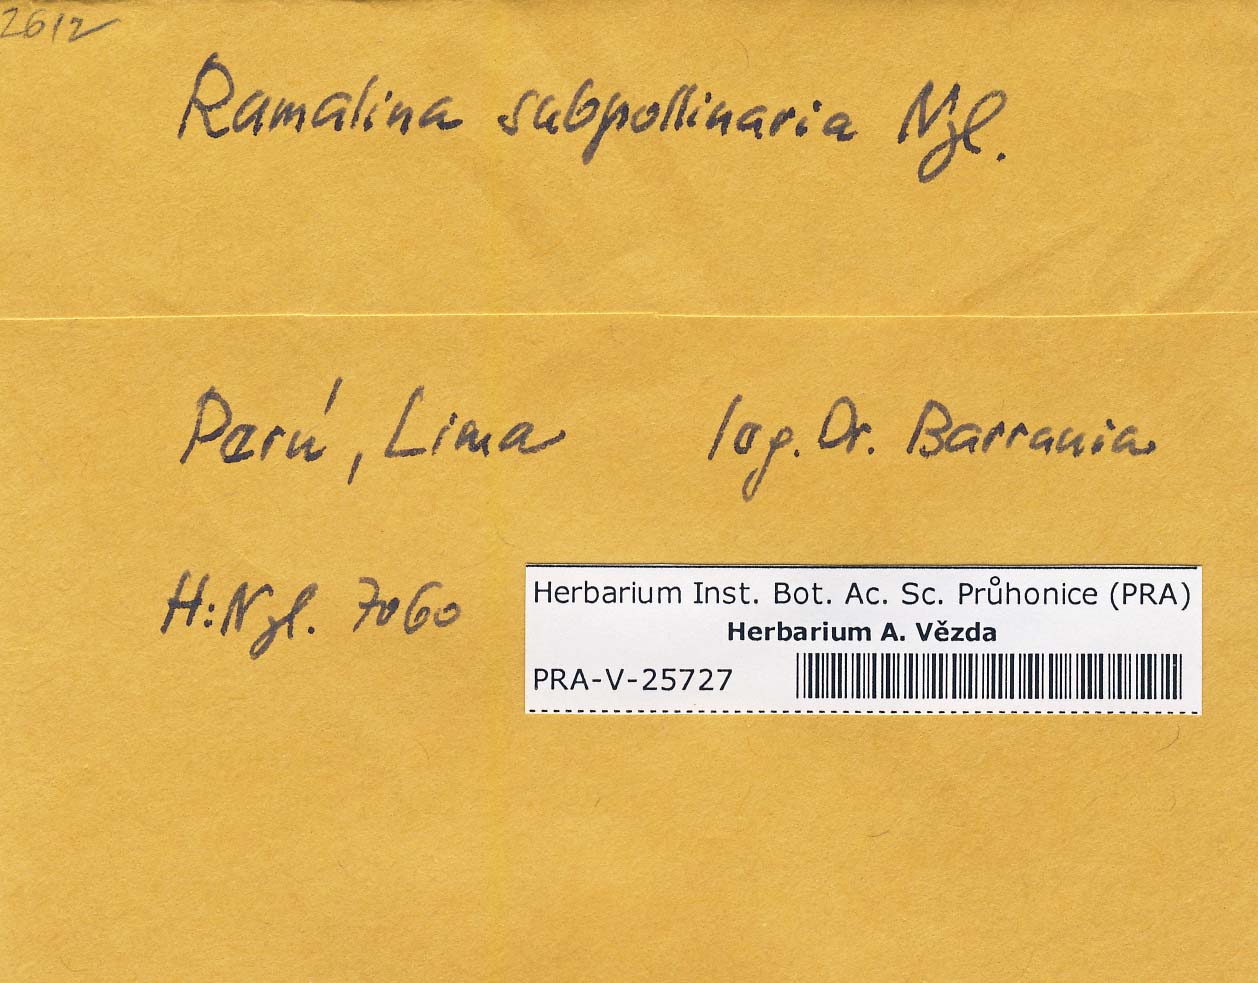 2612
Ramalina subpollinaria Nyl.
Perú, Lima leg. Dr. Barrania
H:Nyl. 7060
Herbarium Inst. Bot. Ac. Sc. Průhonice (PRA)
Herbarium A. Vězda
PRA-V-25727